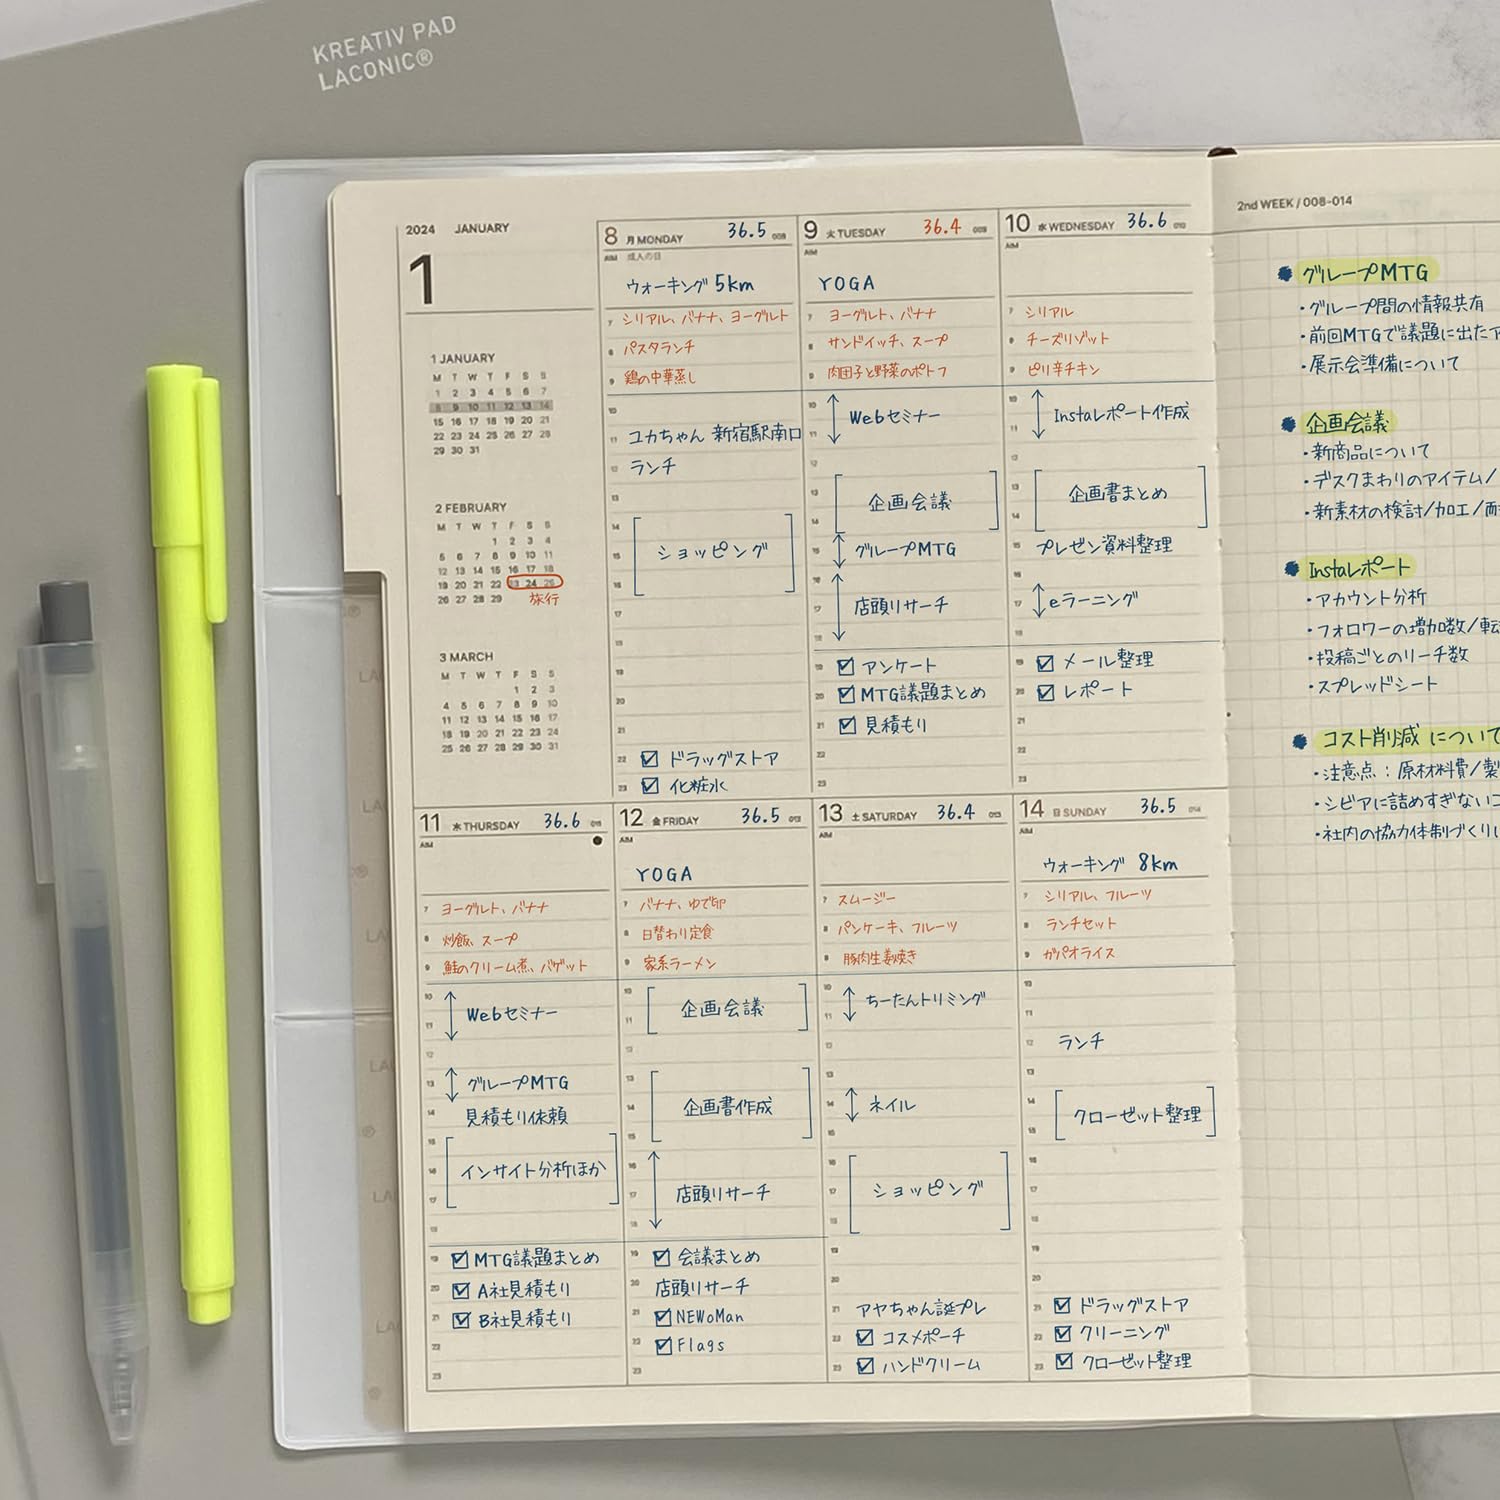 KREATIV PAD
LACONIC®
2024 JANUARY
1
1 JANUARY
M T W T F S S
1 2 3 4 5 6 7
8 9 10 11 12 13 14
15 16 17 18 19 20 21
22 23 24 25 26 27 28
29 30 31
2 FEBRUARY
M T W T F S S
1 2 3 4
5 6 7 8 9 10 11
12 13 14 15 16 17 18
19 20 21 22 23 24 25
26 27 28 29
旅行
3 MARCH
M T W T F S S
1 2 3
4 5 6 7 8 9 10
11 12 13 14 15 16 17
18 19 20 21 22 23 24
25 26 27 28 29 30 31
8 月 MONDAY 36.5 008
AIM 成人の日
ウォーキング 5km
7 シリアル、バナナ、ヨーグルト
8 パスタランチ
9 鶏の中華蒸し
10
11 ユカちゃん 新宿駅南口
12 ランチ
13
14
15 ショッピング
16
17
18
19
20
21
22 ドラッグストア
23 化粧水
9 火 TUESDAY 36.4 009
AIM
YOGA
7 ヨーグルト、バナナ
8 サンドイッチ、スープ
9 肉団子と野菜のポトフ
10 Webセミナー
11
12
13 企画会議
14
15 グループMTG
16
17 店頭リサーチ
18
19 アンケート
20 MTG議題まとめ
21 見積もり
22
23
10 水 WEDNESDAY 36.6 010
AIM
7 シリアル
8 チーズリゾット
9 ピリ辛チキン
10 Instaレポート作成
11
12
13 企画書まとめ
14
15 プレゼン資料整理
16
17 eラーニング
18
19 メール整理
20 レポート
21
22
23
11 木 THURSDAY 36.6 011
AIM
7 ヨーグルト、バナナ
8 炒飯、スープ
9 鮭のクリーム煮、バゲット
10 Webセミナー
11
12
13 グループMTG
14 見積もり依頼
15
16 インサイト分析ほか
17
18
19 MTG議題まとめ
20 A社見積もり
21 B社見積もり
22
23
12 金 FRIDAY 36.5 012
AIM
YOGA
7 バナナ、ゆで卵
8 日替わり定食
9 家系ラーメン
10 企画会議
11
12
13
14 企画書作成
15
16
17 店頭リサーチ
18
19 会議まとめ
20 店頭リサーチ
21 NEWoMan
22 Flags
23
13 土 SATURDAY 36.4 013
AIM
7 スムージー
8 パンケーキ、フルーツ
9 豚肉生姜焼き
10 ちーたんトリミング
11
12
13
14 ネイル
15
16
17 ショッピング
18
19
20
21 アヤちゃん誕プレ
22 コスメポーチ
23 ハンドクリーム
14 日 SUNDAY 36.5 014
AIM
ウォーキング 8km
7 シリアル、フルーツ
8 ランチセット
9 ガパオライス
10
11
12 ランチ
13
14 クローゼット整理
15
16
17
18
19
20
21 ドラッグストア
22 クリーニング
23 クローゼット整理
2nd WEEK / 008-014
グループMTG
・グループ間の情報共有
・前回MTGで議題に出たア
・展示会準備について
企画会議
・新商品について
・デスクまわりのアイテム/
・新素材の検討/加工/
Instaレポート
・アカウント分析
・フォロワーの増加数/転
・投稿ごとのリーチ数
・スプレッドシート
コスト削減 について
・注意点：原材料費/製
・シビアに詰めすぎないコ
・社内の協力体制づくり